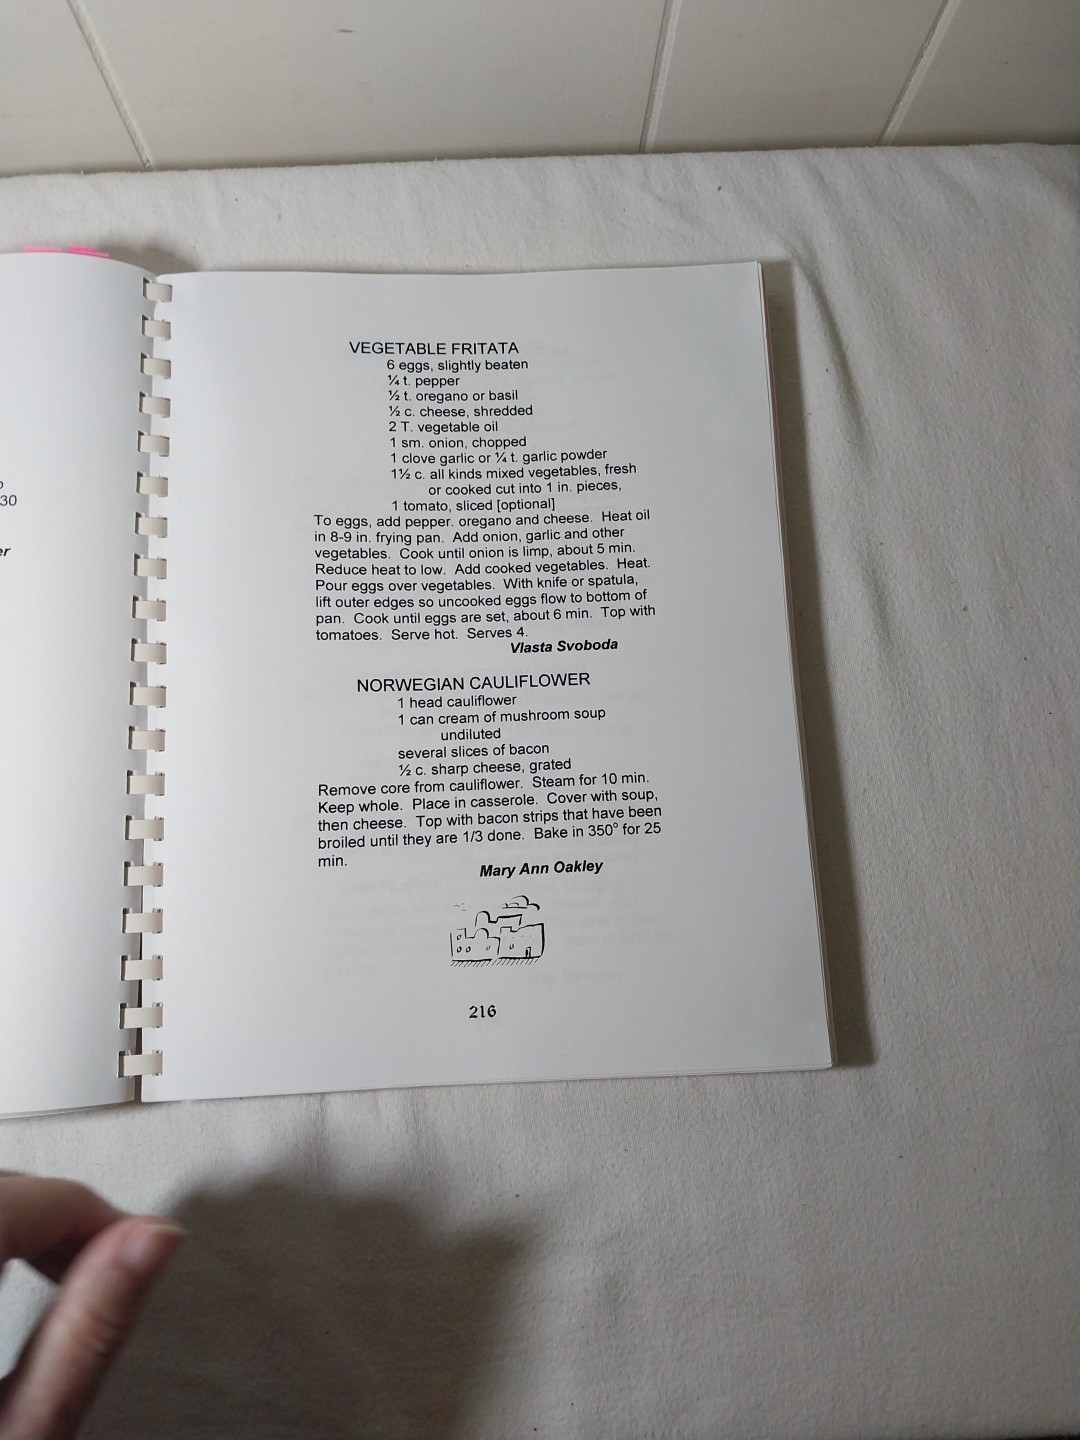 30
er
VEGETABLE FRITATA
6 eggs, slightly beaten
¼ t. pepper
½ t. oregano or basil
½ c. cheese, shredded
2 T. vegetable oil
1 sm. onion, chopped
1 clove garlic or ¼ t. garlic powder
1½ c. all kinds mixed vegetables, fresh
or cooked cut into 1 in. pieces,
1 tomato, sliced [optional]
To eggs, add pepper. oregano and cheese. Heat oil
in 8-9 in. frying pan. Add onion, garlic and other
vegetables. Cook until onion is limp, about 5 min.
Reduce heat to low. Add cooked vegetables. Heat.
Pour eggs over vegetables. With knife or spatula,
lift outer edges so uncooked eggs flow to bottom of
pan. Cook until eggs are set, about 6 min. Top with
tomatoes. Serve hot. Serves 4.
Vlasta Svoboda
NORWEGIAN CAULIFLOWER
1 head cauliflower
1 can cream of mushroom soup
undiluted
several slices of bacon
½ c. sharp cheese, grated
Remove core from cauliflower. Steam for 10 min.
Keep whole. Place in casserole. Cover with soup,
then cheese. Top with bacon strips that have been
broiled until they are 1/3 done. Bake in 350° for 25
min.
Mary Ann Oakley
216